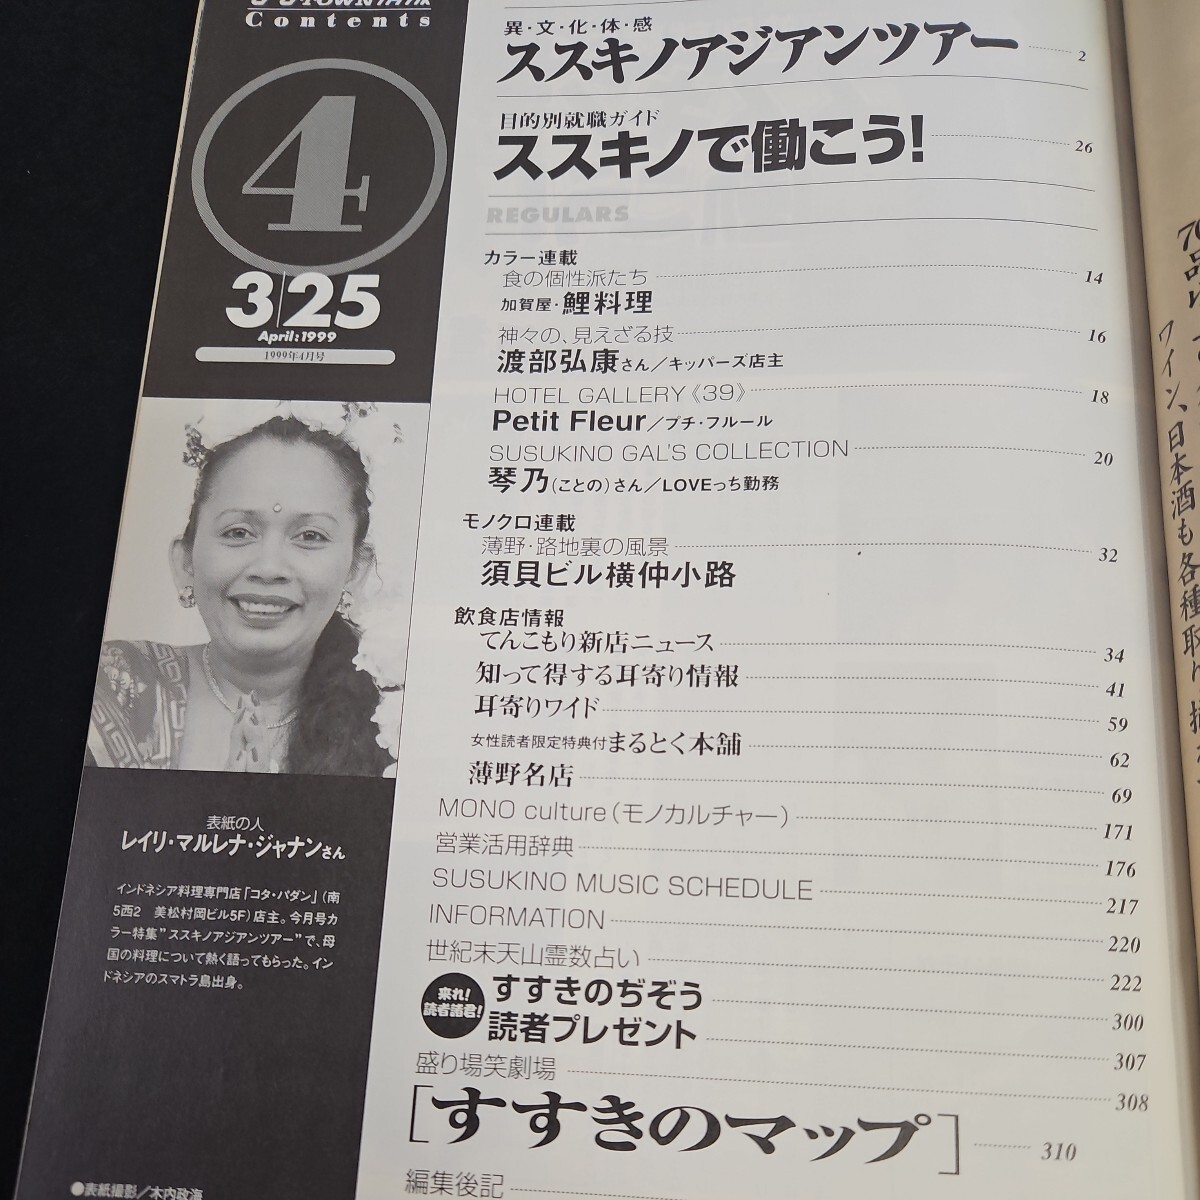 Contents
4
3/25
April:1999
1999年4月号
表紙の人
レイリ・マルレナ・ジャナンさん
インドネシア料理専門店「コタ・パダン」(南
5西2 美松村岡ビル5F)店主。今月号カ
ラー特集"ススキノアジアンツアー"で、母
国の料理について熱く語ってもらった。イン
ドネシアのスマトラ島出身。
●表紙撮影/木内政海
異・文・化・体・感
ススキノアジアンツアー 2
目的別就職ガイド
ススキノで働こう! 26
REGULARS
カラー連載
食の個性派たち 14
加賀屋・鯉料理
神々の、見えざる技 16
渡部弘康さん/キッパーズ店主
HOTEL GALLERY《39》 18
Petit Fleur/プチ・フルール
SUSUKINO GAL'S COLLECTION 20
琴乃(ことの)さん/LOVEっち勤務
モノクロ連載
薄野・路地裏の風景 32
須貝ビル横仲小路
飲食店情報
てんこもり新店ニュース 34
知って得する耳寄り情報 41
耳寄りワイド 59
女性読者限定特典付まるとく本舗 62
薄野名店 69
MONO culture(モノカルチャー) 171
営業活用辞典 176
SUSUKINO MUSIC SCHEDULE 217
INFORMATION 220
世紀末天山霊数占い 222
来れ!
読者諸君!
すすきのぢぞう 300
読者プレゼント 307
盛り場笑劇場 308
[すすきのマップ] 310
編集後記
ワイン、日本酒も各種取り